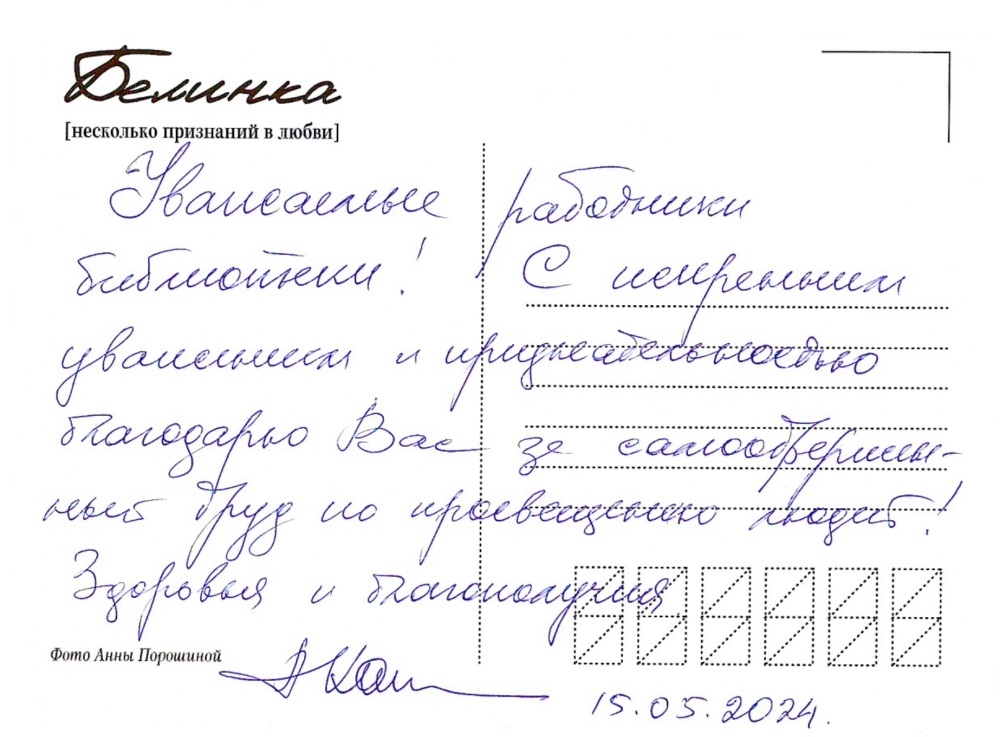 Белинка
[несколько признаний в любви]
Уважаемые работники
библиотеки! С искренним
уважением и признательностью
благодарю Вас за самоотвержен-
ный труд по просвещению людей!
Здоровья и благополучия
Фото Анны Порошиной
15.05.2024.